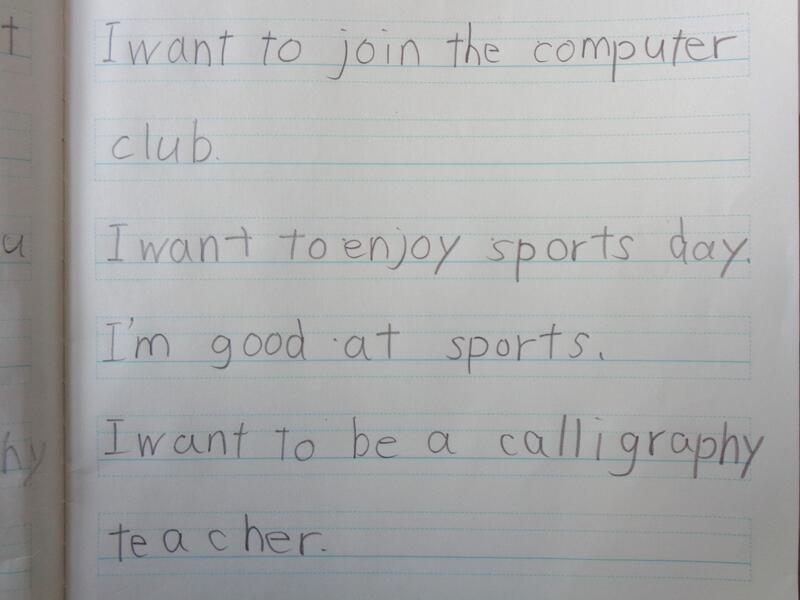 I want to join the computer
club.
I want to enjoy sports day.
I'm good at sports.
I want to be a calligraphy
teacher.